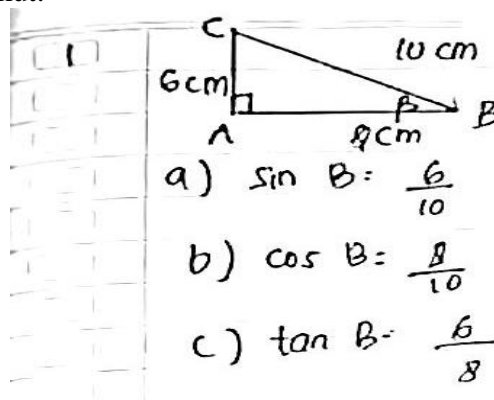 1
C
10 cm
6cm
A
8cm
B
B
a) sin B = 6/10
b) cos B = 8/10
c) tan B = 6/8